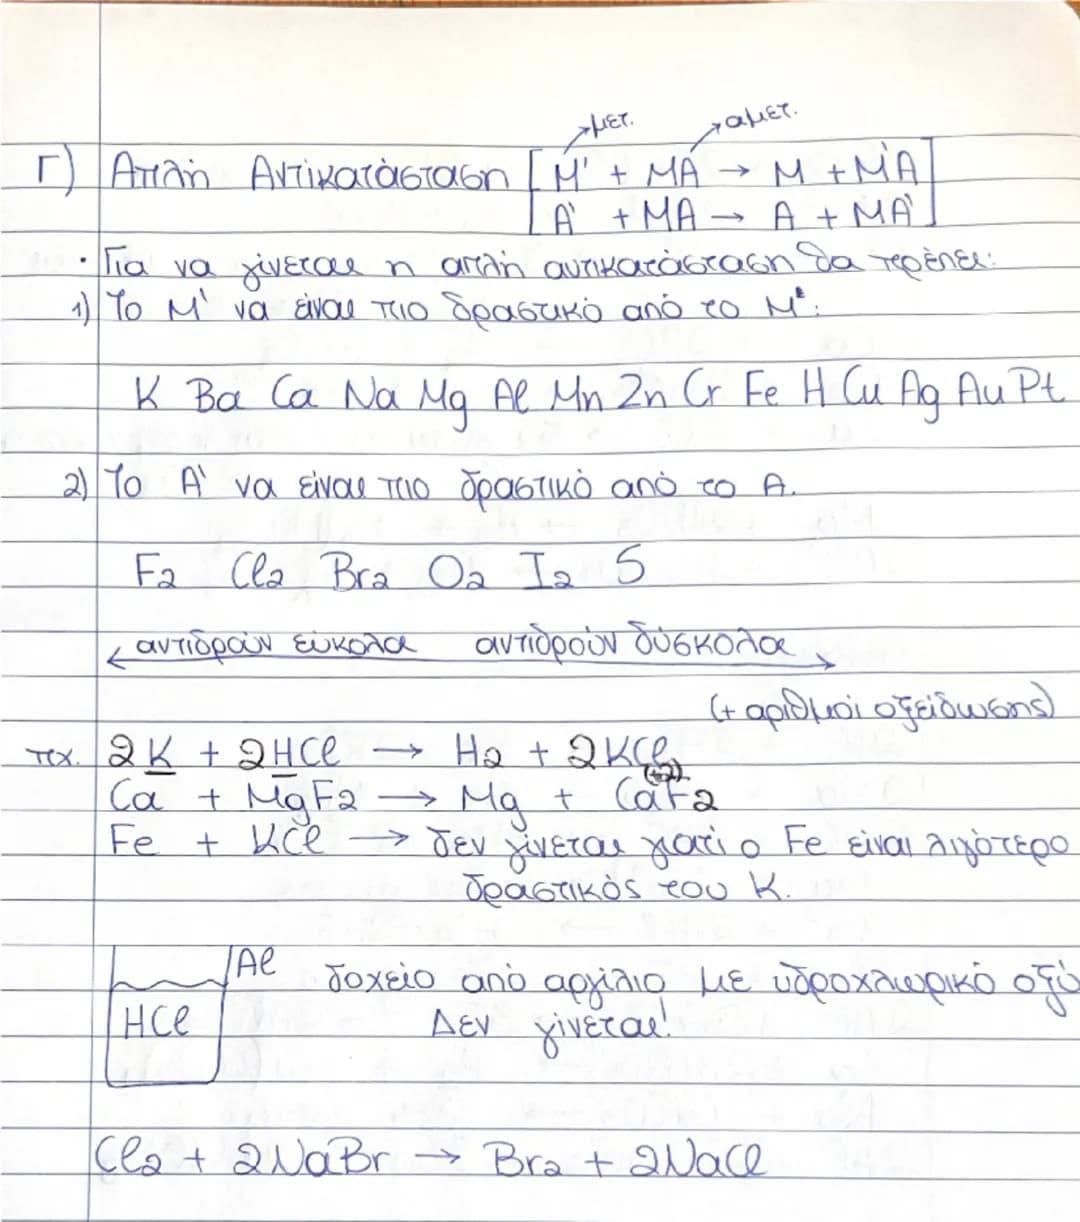 μετ. αμετ.
Γ) Απλή Αντικατάσταση [M' + MA → M + M'A]
[A' + MA → A + MA']
· Για να γίνεται η απλή αντικατάσταση θα πρέπει:
1) Το M' να είναι πιο δραστικό από το M:
K Ba Ca Na Mg Al Mn Zn Cr Fe H Cu Ag Au Pt
2) Το A' να είναι πιο δραστικό από το A.
F2 Cl2 Br2 O2 I2 S
← αντιδρούν εύκολα αντιδρούν δύσκολα →
(+ αριθμοί οξείδωσης)
πχ. 2K + 2HCl → H2 + 2KCl
(+2)
Ca + MgF2 → Mg + CaF2
Fe + KCl → δεν γίνεται γιατί ο Fe είναι λιγότερο
δραστικός του K.
Al δοχείο από αργίλιο με υδροχλωρικό οξύ
HCl Δεν γίνεται!
Cl2 + 2NaBr → Br2 + 2NaCl